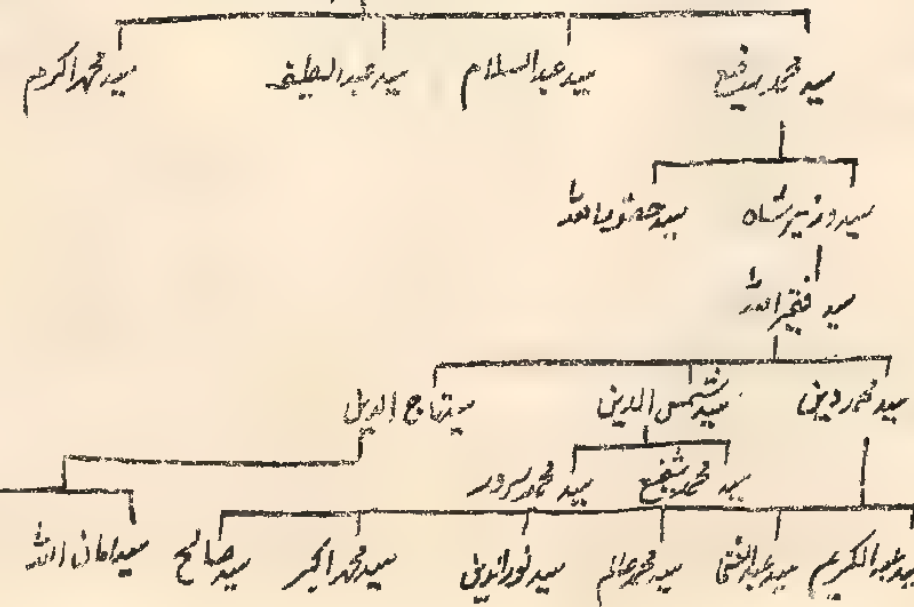 سید محمد رفیع سید عبدالسلام سید عبداللطیف سید محمد اکرم
سید وزیر شاہ سید حضور اللہ
سید فقیر اللہ
سید محمد دین سید شمس الدین سید تاج الدین
سید محمد شفیع سید محمد سرور
سید عبدالکریم سید عبدالغنی سید محمد عالم سید نورالدین سید محمد اکبر سید صالح سید امان اللہ